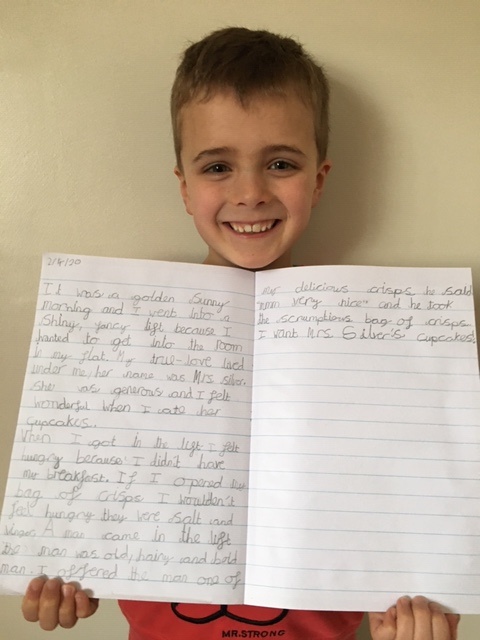 2/4/20
It was a golden sunny
morning and I went into a
shiny, fancy lift because I
wanted to get into the room
in my flat. My true-love lived
under me, her name was Mrs silver.
She was generous and I felt
wonderful when I ate her
cupcakes.
When I got in the lift I felt
hungry because I didn't have
my breakfast. If I opened the
bag of crisps I wouldn't
feel hungry they were salt and
vinegar. A man came in the lift
the man was old, hairy and bold
man. I offered the man one of
my delicious crisps he said
"mm very nice" and he took
the scrumptious bag of crisps
I want Mrs Silver's cupcakes!
MR.STRONG